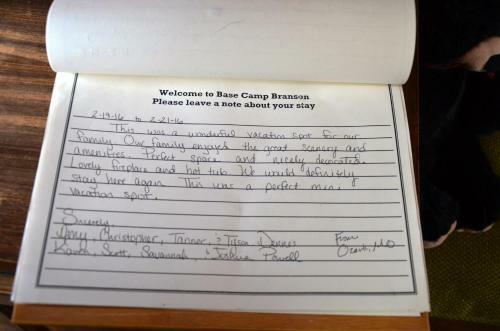 Welcome to Base Camp Branson
Please leave a note about your stay
2-19-16 to 2-21-16
This was a wonderful vacation spot for our
family. Our family enjoyed the great scenery and
amenities. Perfect space and nicely decorated.
Lovely fireplace and hot tub. We would definitely
stay here again. This was a perfect mini
vacation spot.
Sincerely,
Amy, Christopher, Tanner, & Tyson Dennis
Karen, Scott, Savannah, & Joshua Powell
From
Ozark, MO